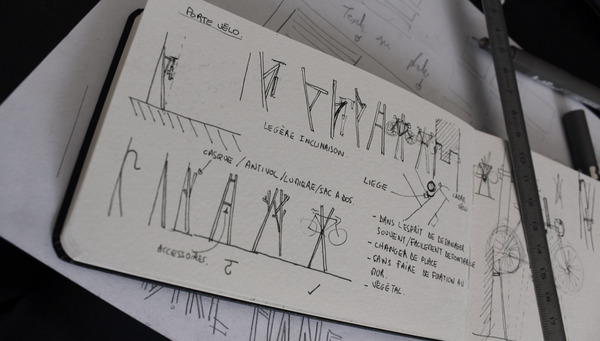 PORTE VÉLO.
LEGÈRE INCLINAISON
CASQUE / ANTIVOL / LUMIÈRE / SAC A DOS
ACCESSOIRES.
LIEGE
CADRE
VÉLO
- DANS L'ESPRIT DE DEMENAGER
SOUVENT / FACILEMENT DEMONTABLE
- CHANGER DE PLACE
- SANS FAIRE DE FIXATION AU
MUR.
- VÉGÉTAL